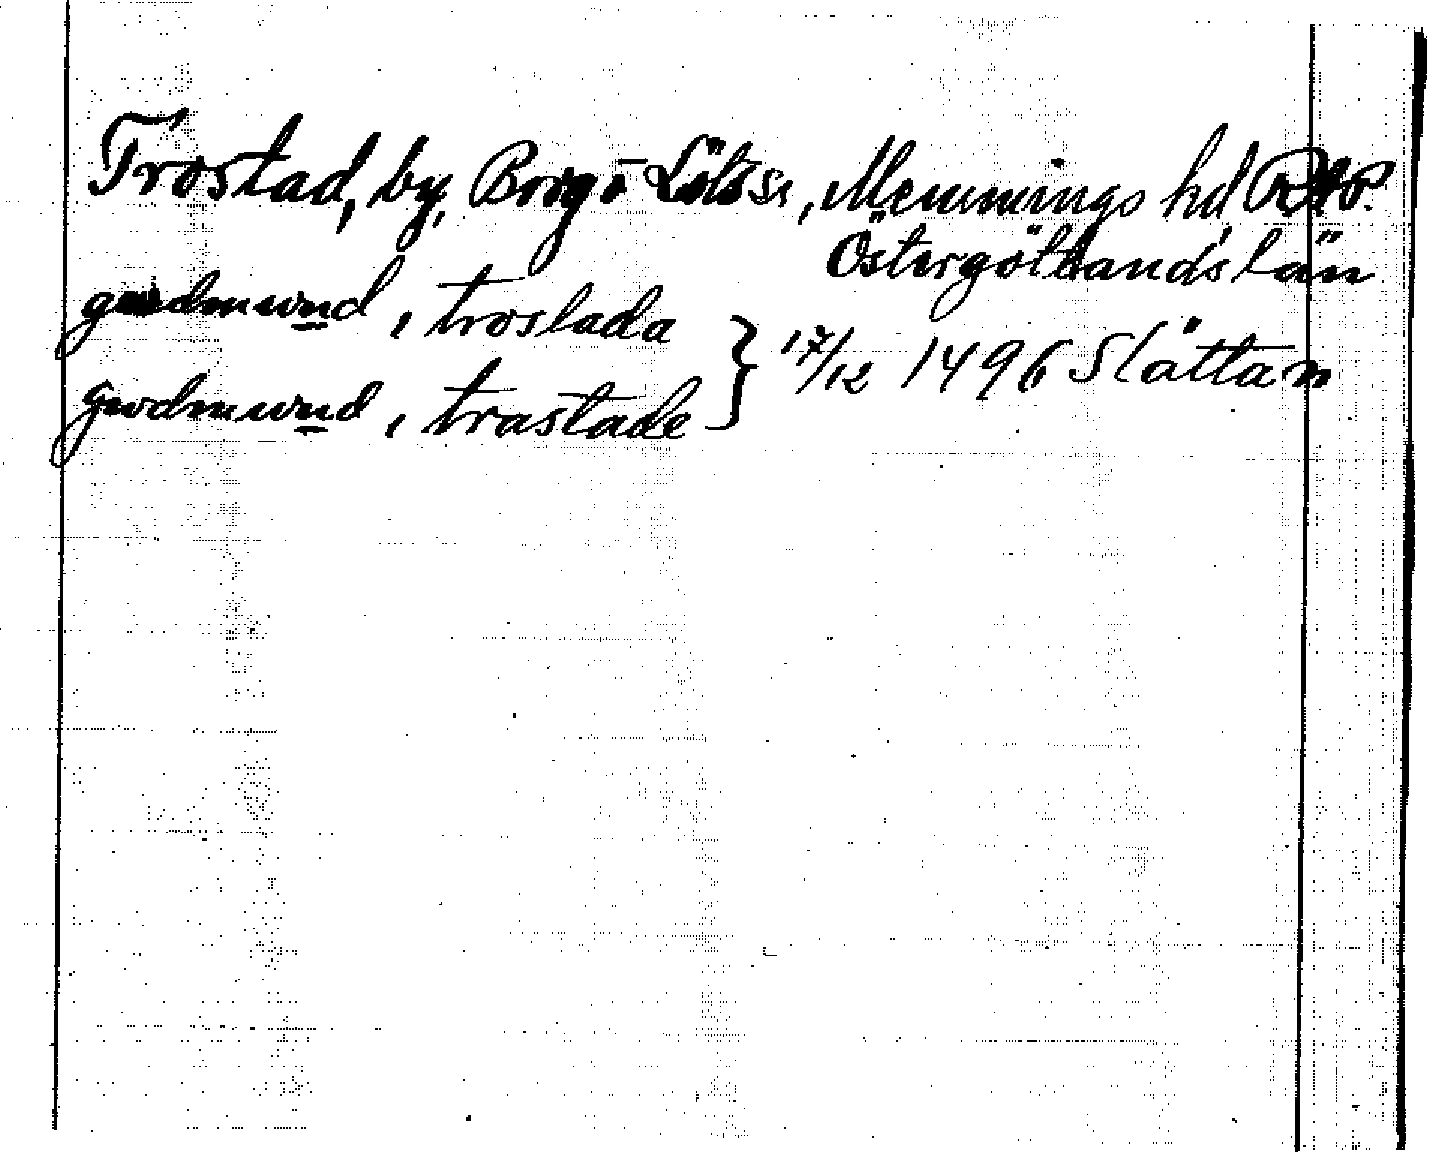 Trostad, by, Borg o Löts sn, Memmings hd RAP.
Östergötlands län
gudmund i troslada
gwdmwnd i trastade } 17/12 1496 Slättan